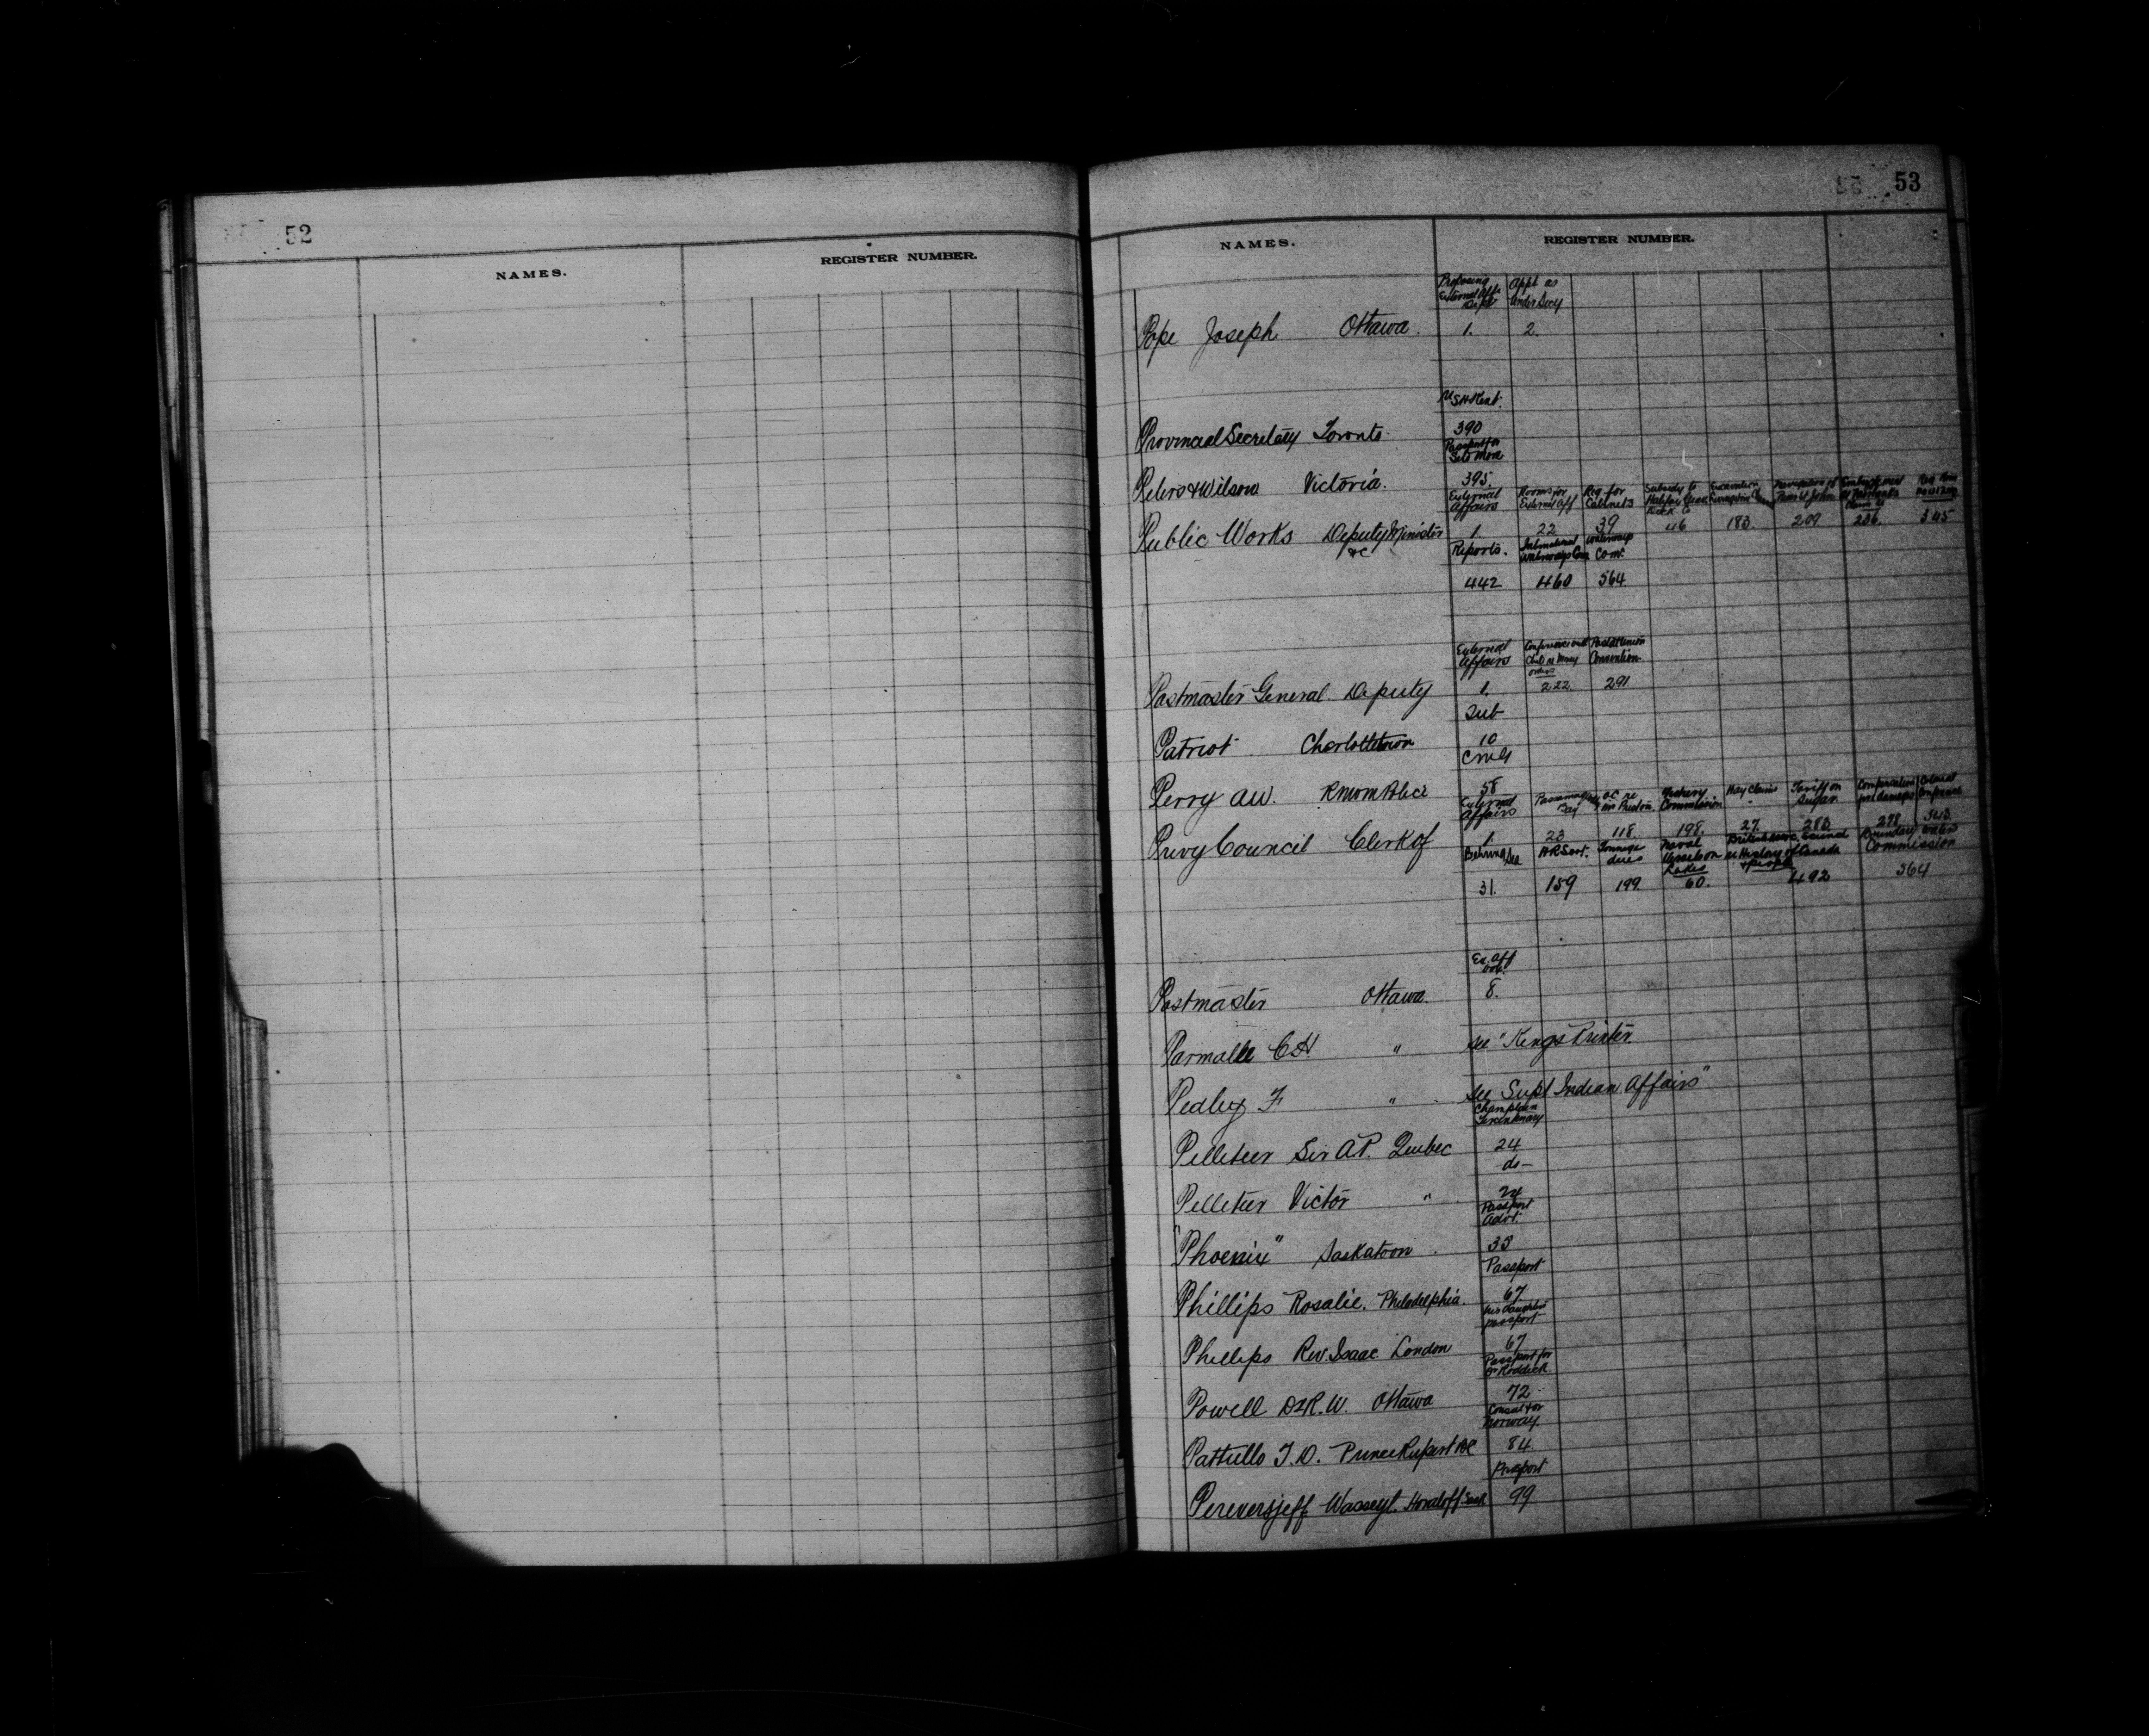 52
NAMES.
REGISTER NUMBER.
53
NAMES.
REGISTER NUMBER.
External Affs Dept Appt as Under Secy
Pope Joseph Ottawa. 1. 2.
Provincial Secretary Toronto. 390
Passport for
Peters & Wilson Victoria. 395.
External Affairs Rooms for External Aff Req for Cabinets Subsidy to Halifax Dock Co
Public Works Deputy Minister &c 1. 22 39 46 183. 209 236. 345
Reports. International Waterways Com Waterways Com:
442 460 564
External Affairs Conference Postal Union Convention
Postmaster General Deputy 1. 222 291
Sub
Patriot Charlottetown 10
Perry AW. RNWM Police 58
External Affairs Fishery Commission Hay claims Tariff on Sugar Colonial Conference
Privy Council Clerk of 1. 23 118. 198. 27. 283 298 343
Behring Sea Tonnage dues Naval Vessels on Lakes History of Canada & people Boundary Waters Commission
31. 159 199 60. 492 564
Ex. Aff
Postmaster Ottawa. 8.
Parmalee CH " see "Kings Printer
Pedley F " see Supt Indian Affairs"
Champlain Tercentenary
Pelletier Sir A.P. Quebec 24
do—
Pelletier Victor " 24
Passport Advt.
"Phoenix" Saskatoon. 33
Passport
Phillips Rosalie. Philadelphia. 67
his daughters passport
Phillips Rev. Isaac London 67
Passport for Dr Roddick
Powell Dr R.W. Ottawa 72
Consul for Norway.
Pattullo T.D. Prince Rupert BC 84
Passport
Pereversjeff Wasseyl. Sask 99